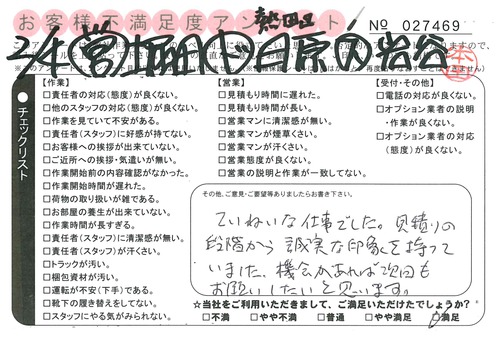 お客様不満足度アン
熱田区
No 027469
チェックリスト
【作業】
□責任者の対応(態度)が良くない。
□他のスタッフの対応(態度)が良くない。
□作業を見ていて不安がある。
□責任者(スタッフ)に好感が持てない。
□お客様への挨拶が出来ていない。
□ご近所への挨拶・気遣いが無い。
□作業開始前の内容確認がなかった。
□作業開始時間が遅れた。
□荷物の取り扱いが雑である。
□お部屋の養生が出来ていない。
□作業時間が長すぎる。
□責任者(スタッフ)に清潔感が無い。
□責任者(スタッフ)が汗くさい。
□トラックが汚い。
□梱包資材が汚い。
□運転が不安(下手)である。
□靴下の履き替えをしてない。
□スタッフにやる気がみられない。
【営業】
□見積もり時間に遅れた。
□見積もり時間が長い。
□営業マンに清潔感が無い。
□営業マンが煙草くさい。
□営業マンが汗くさい。
□営業態度が良くない。
□営業の説明と作業が一致してない。
【受付・その他】
□電話の対応が良くない。
□オプション業者の説明
・作業が良くない。
□オプション業者の対応
(態度)が良くない。
その他、ご意見・ご要望等ありましたらお書き下さい。
ていねいな仕事でした。見積りの
段階から誠実な印象を持って
いました。機会があれば次回も
お願いしたいと思います。
☆当社をご利用いただきまして、ご満足いただけたでしょうか?
□不満 □やや不満 □普通 □やや満足 □満足